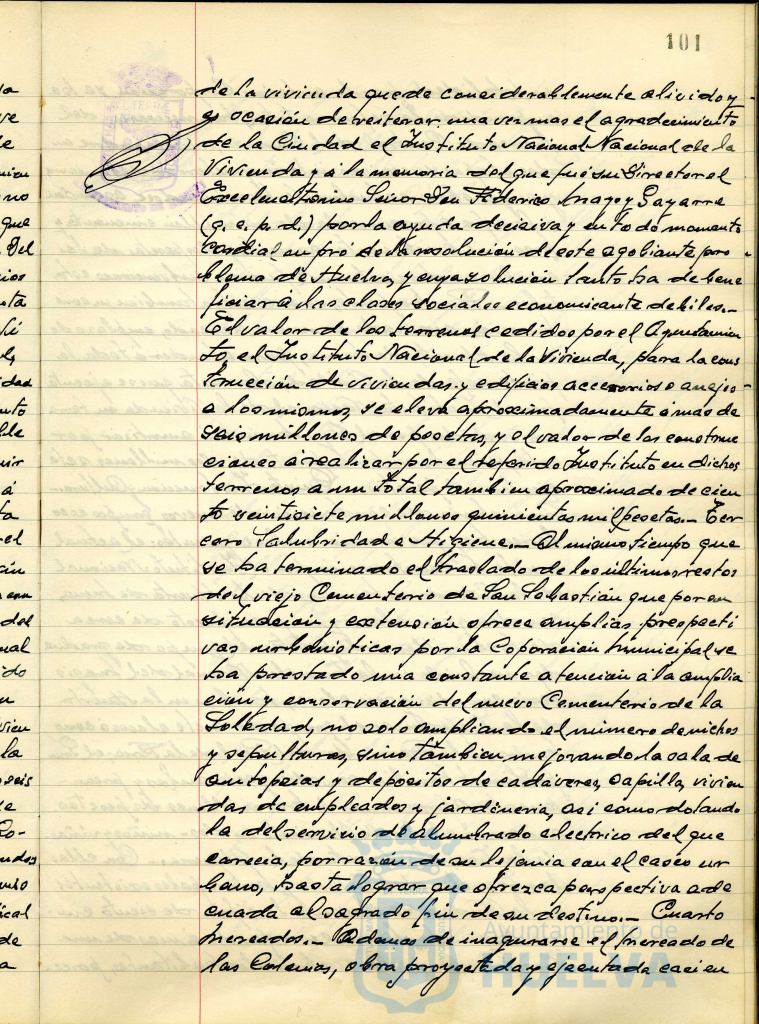 101
de la vivienda quede considerablemente alivido y
es ocasión de reiterar una vez mas el agradecimiento
de la Ciudad al Instituto Nacional Nacional de la
Vivienda y a la memoria del que fué su Director el
Excelentisimo Señor Don Federico Mayo y Gayarre
(q. e. p. d.) por la ayuda decisiva y en todo momento
cordial en pró de la resolución de este agobiante pro-
blema de Huelva, y cuya solución tanto ha de bene
ficiar á las clases sociales economicante debiles.-
El valor de los terrenos cedidos por el Ayuntamien
to, el Instituto Nacional de la Vivienda, para la cons
trucción de viviendas y edificios accesorios o anejos
a los mismos, se eleva aproximadamente á mas de
seis millones de pesetas, y el valor de las construc
ciones á realizar por el referido Instituto en dichos
terrenos a un total tambien aproximado de cien
to veintisiete millones quinientas mil pesetas.- Ter
cero Salubridad e Higiene.- Al mismo tiempo que
se ha terminado el traslado de los ultimos restos
del viejo Cementerio de San Sebastián que por su
situación y extensión ofrece amplias prespecti
vas urbanisticas por la Coporación municipal se
ha prestado una constante atención á la amplia
ción y conservación del nuevo Cementerio de la
Soledad, no solo ampliando el número de nichos
y sepulturas, sino tambien mejorando la sala de
autopsias y depósitos de cadáveres, capilla, vivien
das de empleados y jardineria, asi como dotando
la del servicio de alumbrado electrico del que
carecia, por razón de su lejania con el casco ur
bano, hasta lograr que ofrezca perspectiva ade
cuada al sagrado fin de su destino.- Cuarto
Mercados.- Ademas de inagurarse el Mercado de
las Colonias, obra proyectada y ejecutada casi en
Ayuntamiento de
HUELVA